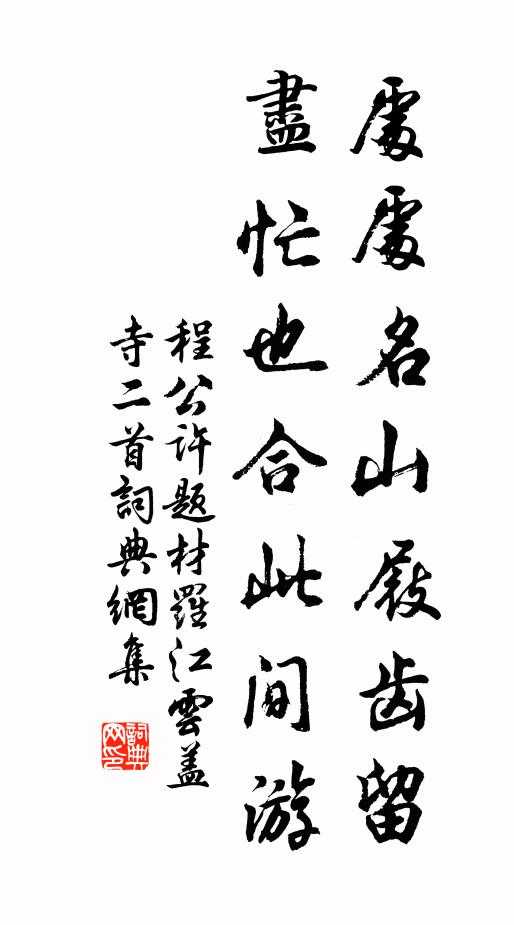 處處名山屐齒留
盡忙也合此间游
程公许题材羅江雲盖
寺二首詞典網集
詞典网印